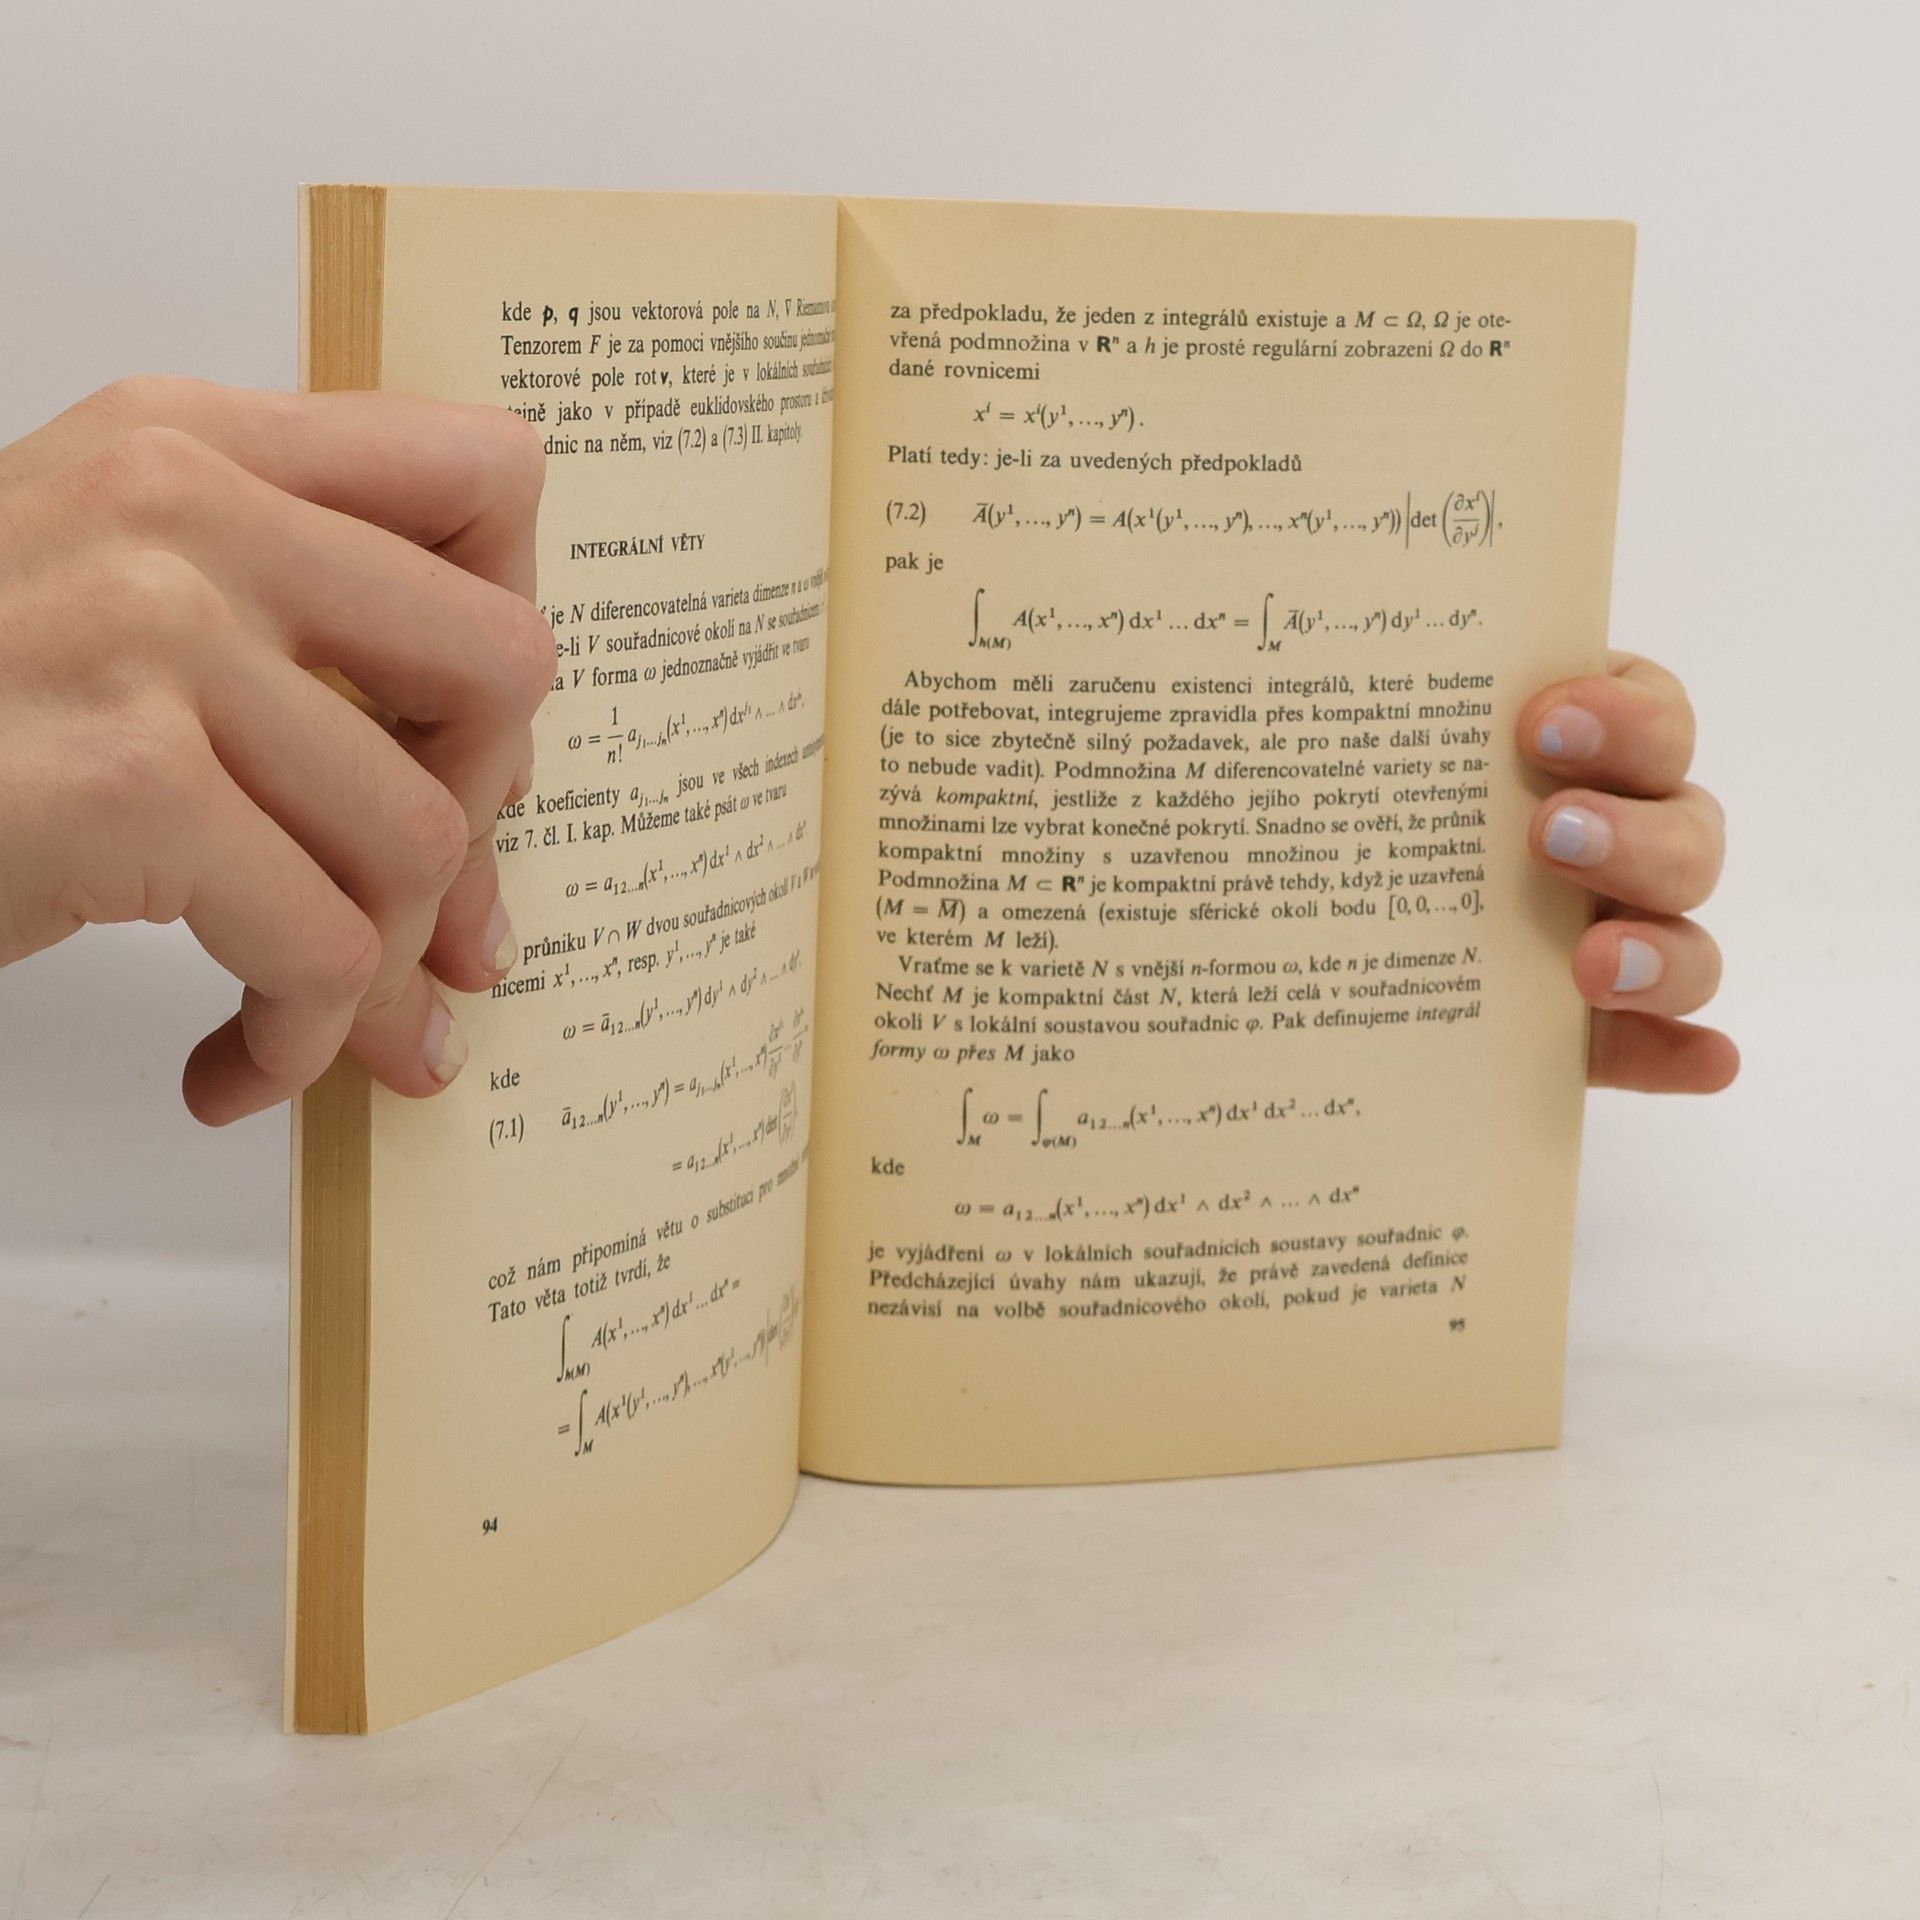 kde p, q jsou vektorová pole na N, ∇
Tenzorem F je za pomoci vnějšího součinu
vektorové pole rot v, které je v lokálních
jako v případě euklidovského prostoru a
na něm, viz (7.2) a (7.3) II. kapitoly.
INTEGRÁLNÍ VĚTY
je N diferencovatelná varieta dimenze n a ω
V souřadnicové okolí na N se
V forma ω jednoznačně vyjádřit ve tvaru
ω = 1/n! a_{j₁...jₙ}(x¹, ..., xⁿ) dx^{j₁} ∧ ... ∧ dx^{jₙ},
kde koeficienty a_{j₁...jₙ} jsou ve všech indexech
viz 7. čl. I. kap. Můžeme také psát ω ve tvaru
ω = a₁₂...ₙ(x¹, ..., xⁿ) dx¹ ∧ dx² ∧ ... ∧ dxⁿ
průniku V ∩ W dvou souřadnicových okolí V a W
x¹, ..., xⁿ, resp. y¹, ..., yⁿ je také
ω = ā₁₂...ₙ(y¹, ..., yⁿ) dy¹ ∧ dy² ∧ ... ∧ dyⁿ,
kde
(7.1) ā₁₂...ₙ(y¹, ..., yⁿ) = a_{j₁...jₙ}(x¹, ..., xⁿ)
= a₁₂...ₙ(x¹, ..., xⁿ) det
což nám připomíná větu o substituci pro
Tato věta totiž tvrdí, že
∫_{h(M)} A(x¹, ..., xⁿ) dx¹ ... dxⁿ =
= ∫_M A(x¹(y¹, ..., yⁿ), ..., xⁿ(y¹, ..., yⁿ))
94
za předpokladu, že jeden z integrálů existuje a M ⊂ Ω, Ω je ote-
vřená podmnožina v Rⁿ a h je prosté regulární zobrazení Ω do Rⁿ
dané rovnicemi
xⁱ = xⁱ(y¹, ..., yⁿ).
Platí tedy: je-li za uvedených předpokladů
(7.2) Ā(y¹, ..., yⁿ) = A(x¹(y¹, ..., yⁿ), ..., xⁿ(y¹, ..., yⁿ)) |det (∂xⁱ/∂yʲ)|,
pak je
∫_{h(M)} A(x¹, ..., xⁿ) dx¹ ... dxⁿ = ∫_M Ā(y¹, ..., yⁿ) dy¹ ... dyⁿ.
Abychom měli zaručenu existenci integrálů, které budeme
dále potřebovat, integrujeme zpravidla přes kompaktní množinu
(je to sice zbytečně silný požadavek, ale pro naše další úvahy
to nebude vadit). Podmnožina M diferencovatelné variety se na-
zývá kompaktní, jestliže z každého jejího pokrytí otevřenými
množinami lze vybrat konečné pokrytí. Snadno se ověří, že průnik
kompaktní množiny s uzavřenou množinou je kompaktní.
Podmnožina M ⊂ Rⁿ je kompaktní právě tehdy, když je uzavřená
(M = M̄) a omezená (existuje sférické okolí bodu [0, 0, ..., 0],
ve kterém M leží).
Vraťme se k varietě N s vnější n-formou ω, kde n je dimenze N.
Nechť M je kompaktní část N, která leží celá v souřadnicovém
okolí V s lokální soustavou souřadnic φ. Pak definujeme integrál
formy ω přes M jako
∫_M ω = ∫_{φ(M)} a₁₂...ₙ(x¹, ..., xⁿ) dx¹ dx² ... dxⁿ,
kde
ω = a₁₂...ₙ(x¹, ..., xⁿ) dx¹ ∧ dx² ∧ ... ∧ dxⁿ
je vyjádření ω v lokálních souřadnicích soustavy souřadnic φ.
Předcházející úvahy nám ukazují, že právě zavedená definice
nezávisí na volbě souřadnicového okolí, pokud je varieta N
95